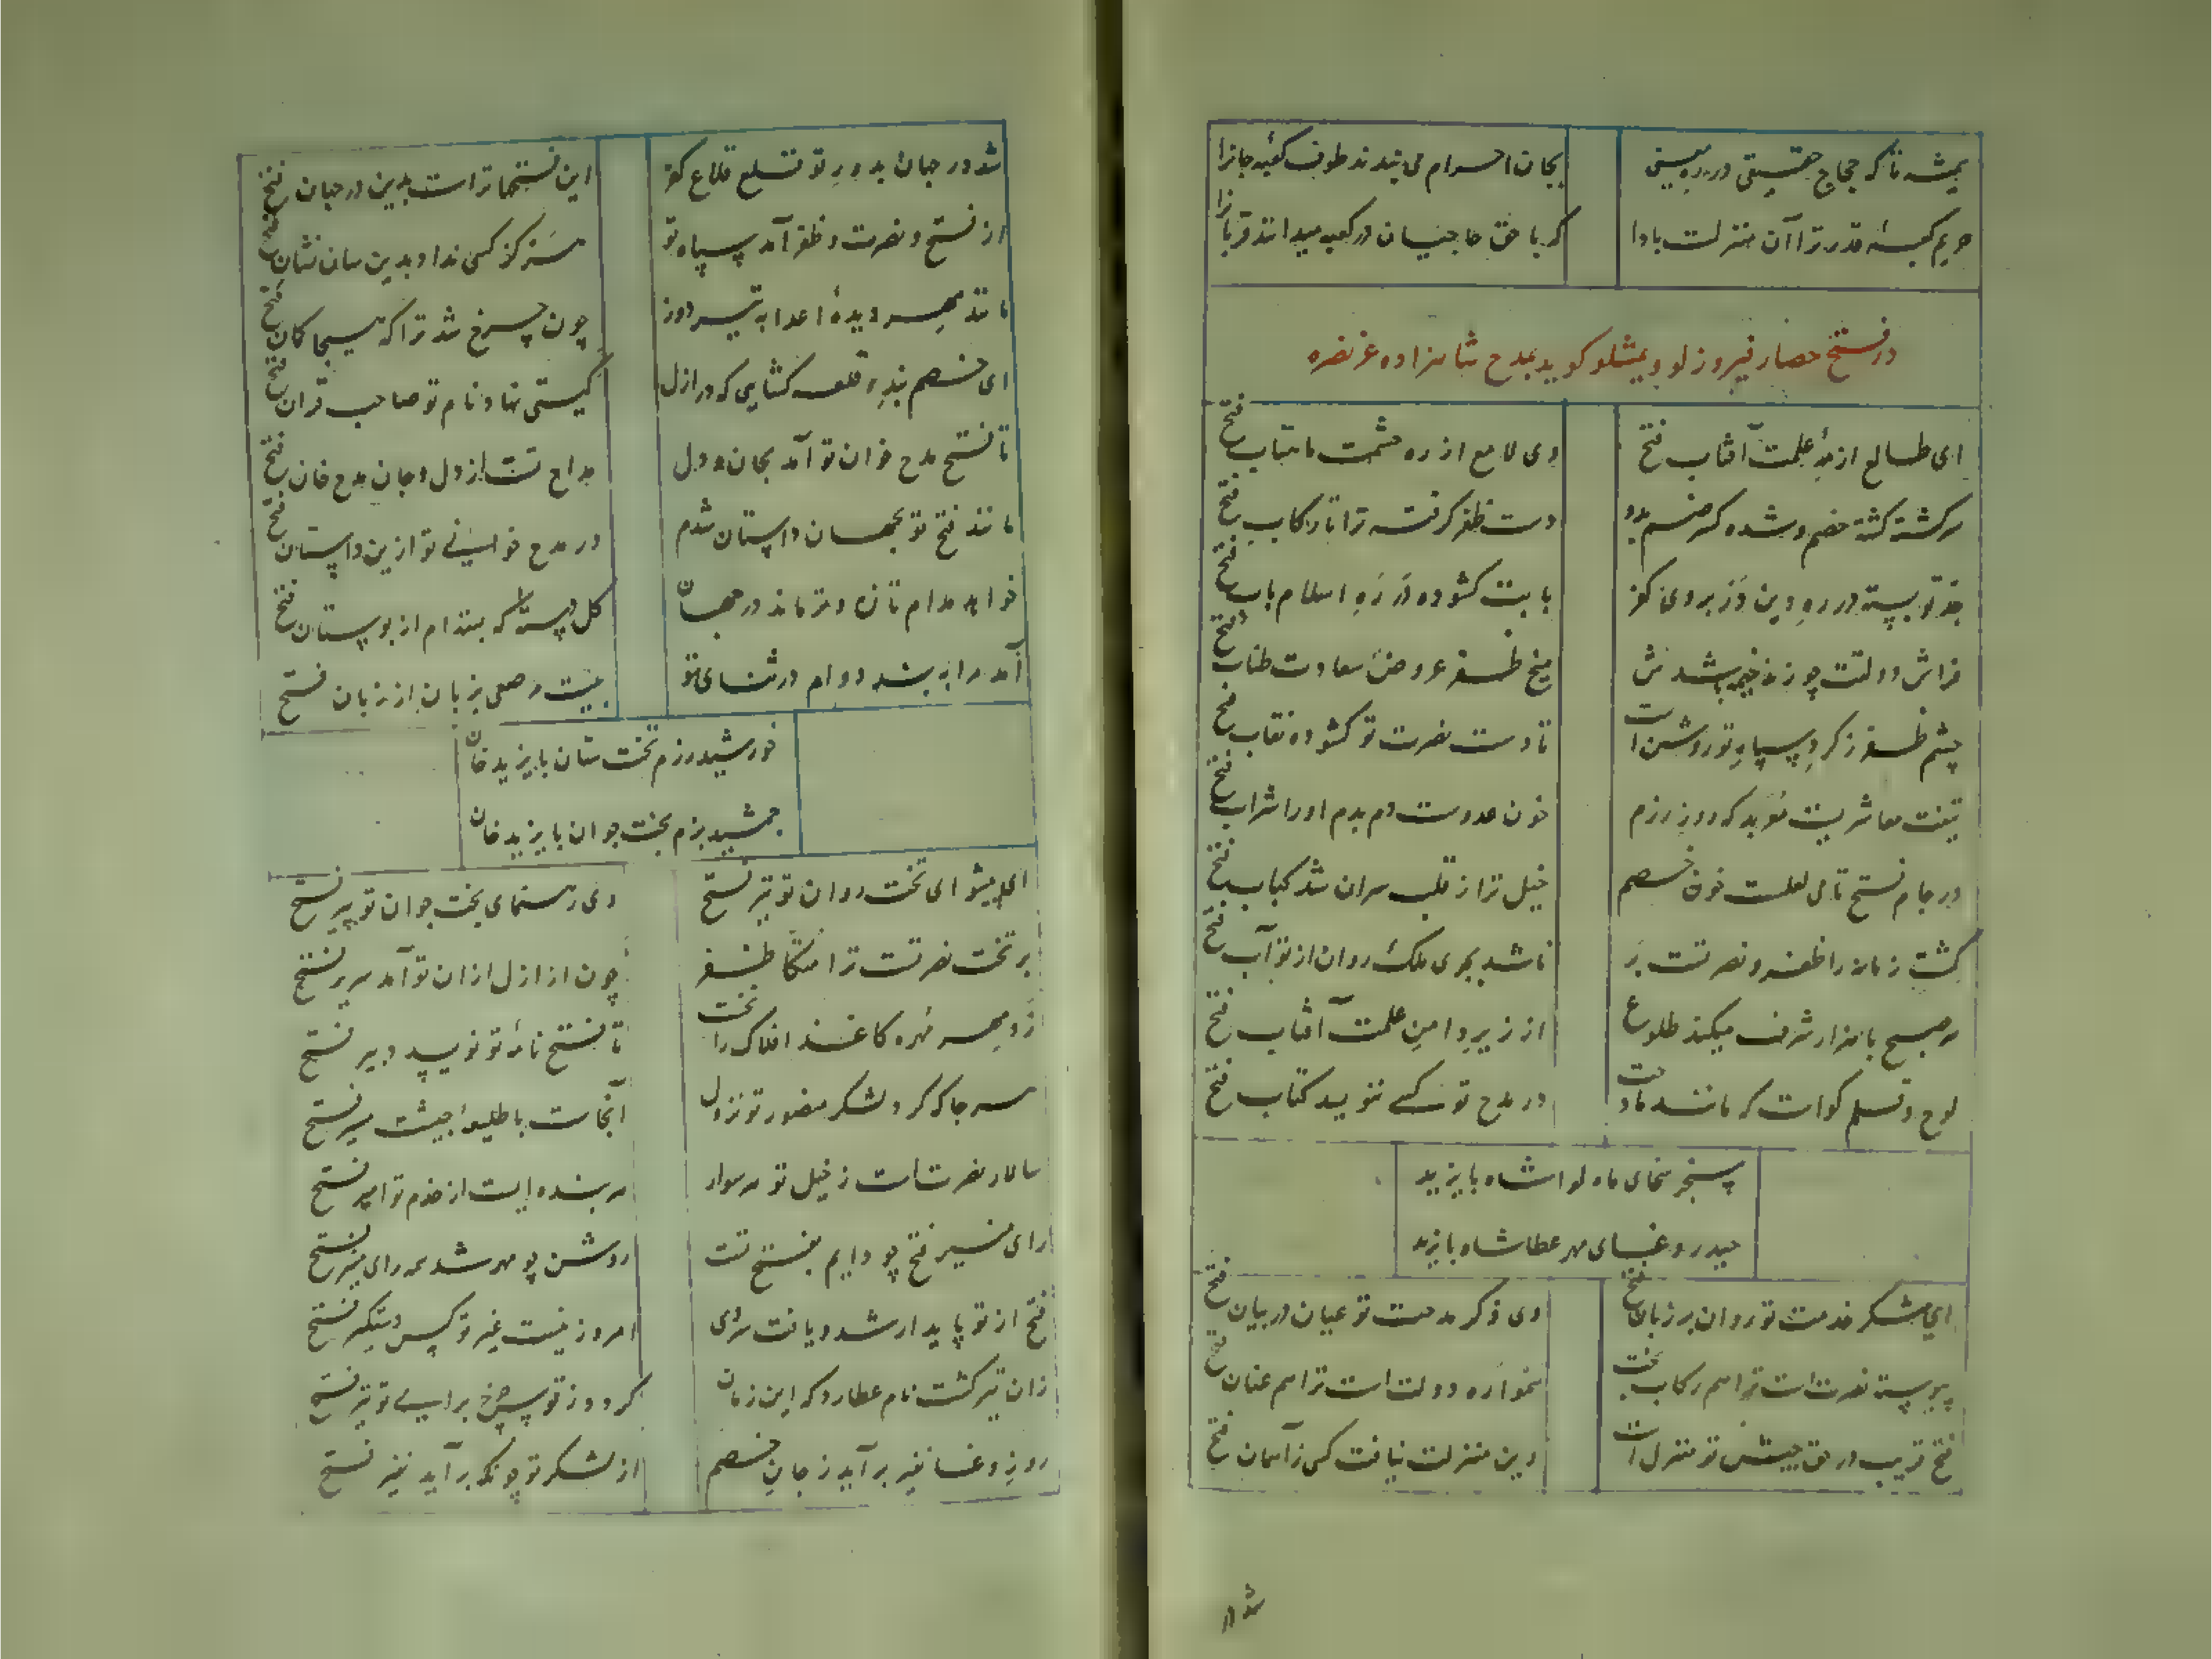 همیشه تا که حجاج حقیقی در ره معنی
بجان احرام می بندند طوف کعبه جانرا
حریم کعبه قدر ترا آن منزلت بادا
که با حق حاجیان در کعبه میدانند قربانرا
در فتح حصار فیروزلو و یمشلو کوید بمدح شاهزاده عز نصره
ای طالع از مه علمت آفتاب فتح
وی لامع از ره حشمت ماهتاب فتح
سرکشته کشته خصم و شده
دست ظفر کرفته ترا تا رکاب فتح
بسته در ره دین در بروی کفر
بابت کشوده در ره اسلام باب فتح
فراش دولتت چو زند خیمه باشدش
میخ ظفر عروض سعادت طناب فتح
چشم ظفر ز کرد سپاه تو روشن است
تا دست نصرت تو کشوده نقاب فتح
تیغت معاشریست که روز رزم
خون عدوست دم بدم او را شراب فتح
در جام فتح تا می لعلست خون خصم
خیل ترا ز قلب سران شد کباب فتح
کشت زمانه را ظفر و نصرتست بر
تا شد بجوی ملک روان از تو آب فتح
هر صبح با هزار شرف میکند طلوع
از زیر دامن علمت آفتاب فتح
لوح و قلم کواست که مانند مادحت
در مدح تو کسی ننویسد کتاب فتح
سنجر سخای ماه لوا شاه بایزید
حیدر وغای مهر عطا شاه بایزید
ای شکر خدمت تو روان بر زبان فتح
وی ذکر مدحت تو عیان در بیان فتح
پیوسته نصرت است ترا هم رکاب بخت
همواره دولت است ترا هم عنان فتح
فتح قریب در حق جیش تو منزل است
وین منزلت نیافت کس ز آسمان فتح
شد در
شد در جهان بدور تو قلع قلاع کفر
این فتحها تراست بدین در جهان فتح
از فتح و نصرت و ظفر آمد سپاه تو
هرکز کسی نداد بدین سان نشان فتح
مانند مهر دیده اعدا به تیر دوز
چون چرخ شد ترا که هیجا کمان فتح
ای خصم بند و قلعه کشایی که در ازل
کیتی نهاد نام تو صاحب قران فتح
تا فتح مدح خوان تو آمد بجان و دل
مداح تست از دل و جان مدح خوان فتح
مانند فتح تو بجهان داستان شدم
در مدح خوانی تو ازین داستان فتح
خواهد مدام تازه و تر ماند در جهان
کل دسته که بستدام از بوستان فتح
آمد مرا به بند دوام در ثنای تو
بیت مرصعی بزبان از زبان فتح
خورشید رزم تخت ستان بایزید خان
جمشید بزم بخت جوان بایزید خان
ای پیشوای تخت روان تو تیر فتح
وی رهنمای بخت جوان تو پیر فتح
بر تخت نصرتست ترا متکا ظفر
چون از ازل از ان تو آمد سریر فتح
زد مهر مهره کاغذ افلاک را بخت
تا فتح نامه تو نویسد دبیر فتح
هر جا که کرد لشکر منصور تو نزول
آنجاست با طلیعه جیشت مسیر فتح
سالار نصرت است ز خیل تو هر سوار
هر بنده ایست از خدم تو امیر فتح
رای منیر فتح چو دایم بفتح تست
روشن چو مهر شد همه رای منیر فتح
فتح از تو پایدار شد و یافت سروری
امروز نیست غیر تو کس دستکیر فتح
زان تیر کشت نام عطارد که این زمان
کردوز تو سپهر برای تو تیر فتح
روز وغا نفیر برآید ز جان خصم
از لشکر تو چونکه برآید نفیر فتح